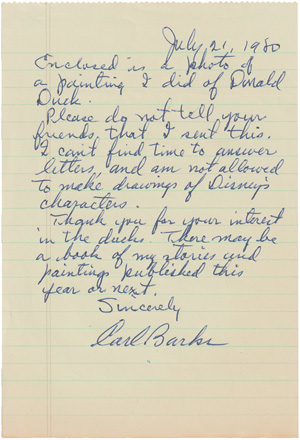 July 21, 1980
Enclosed is a photo of
a painting I did of Donald
Duck.
Please do not tell your
friends, that I sent this.
I can't find time to answer
letters, and am not allowed
to make drawings of Disney's
characters.
Thank you for your interest
in the ducks. There may be
a book of my stories and
paintings published this
year or next.
Sincerely
Carl Barks